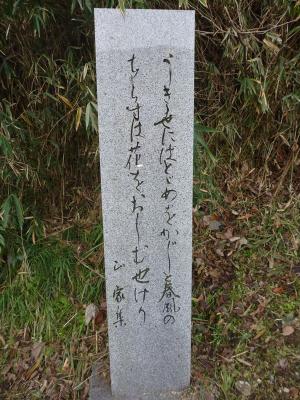 うき世にはとゞめをかじと春風の
ちらすは花をおしむ也けり
山家集